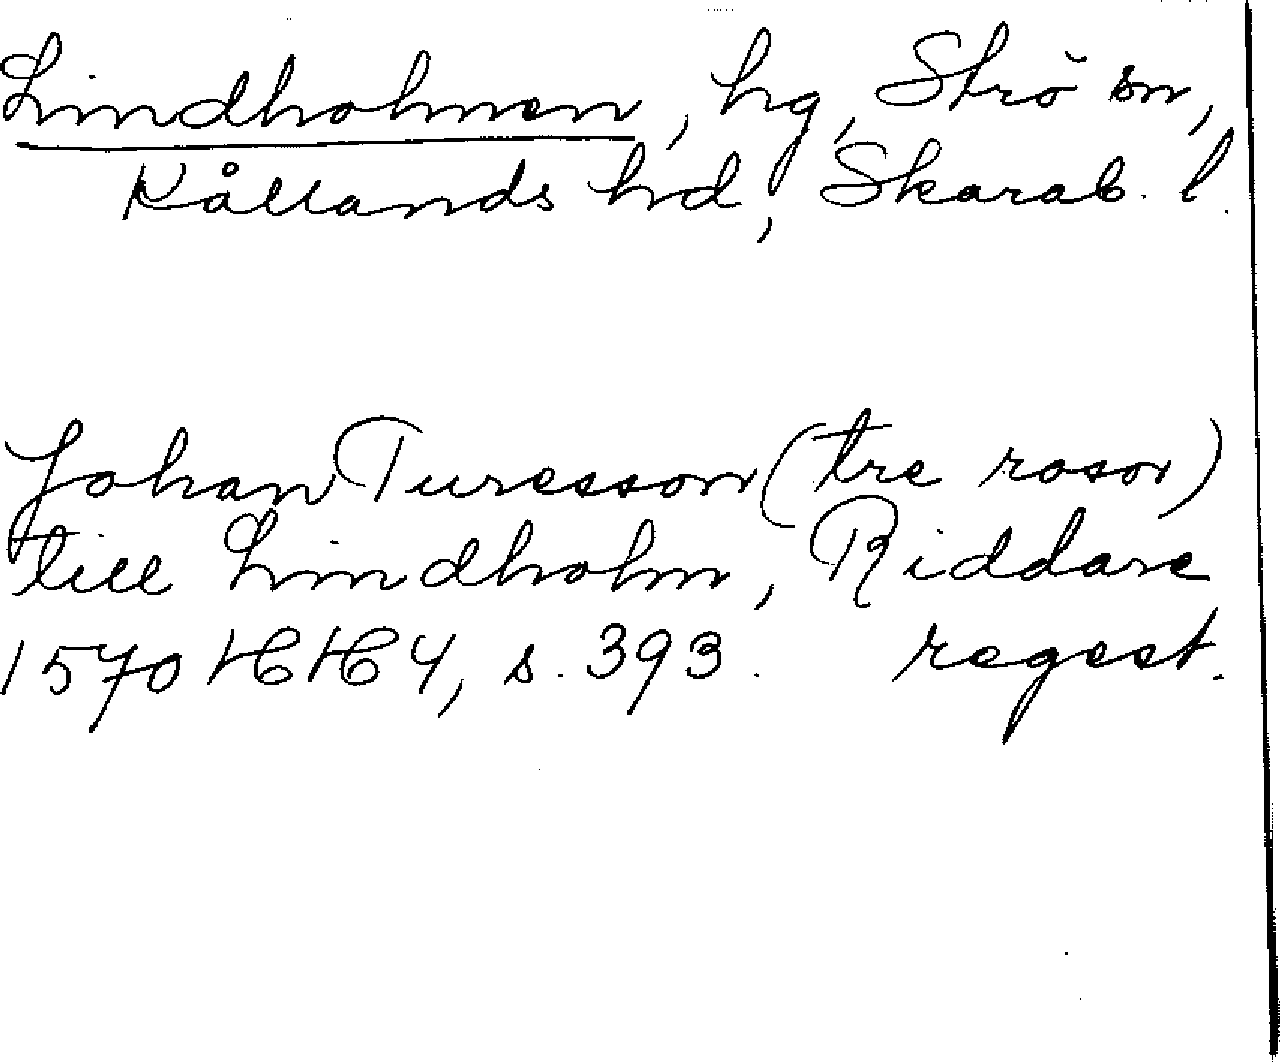 Lindholmen, hg, Strö sn,
Kållands hd, Skarab. l.
Johan Turesson (tre rosor)
till Lindholm, Riddare
1570 HH 4, s. 393. regest.